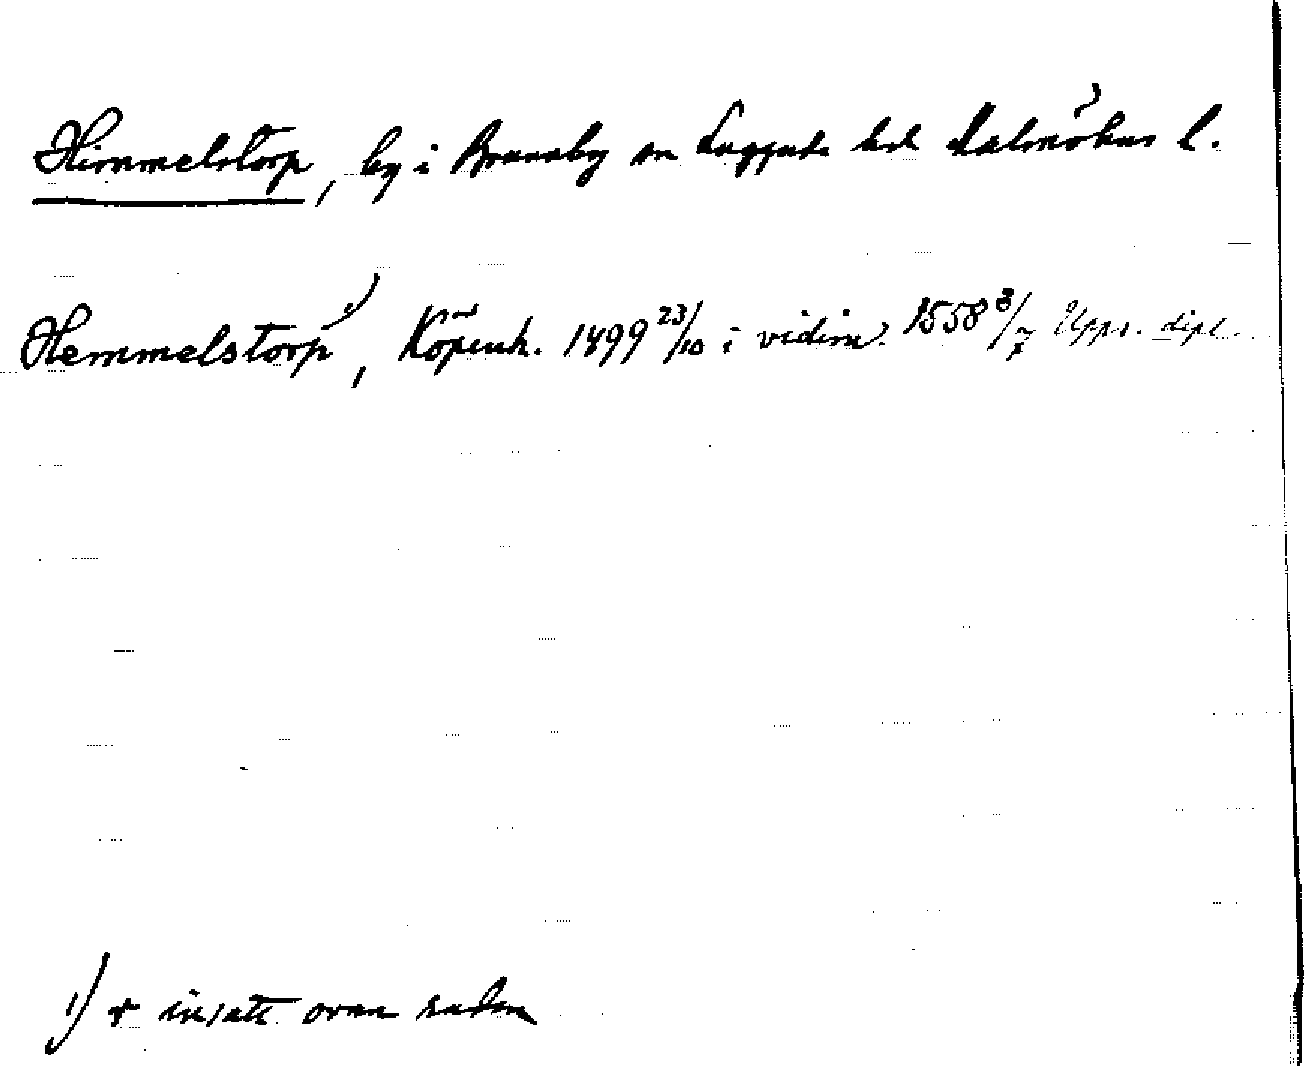 Himmelstorp, by i Brunnby sn Luggude hd Malmöhus l.
Hemmelstorp 1), Köpenh. 1499 23/10 i vidim. 1558 3/7 Upps. dipl.
1) r insatt ovan raden